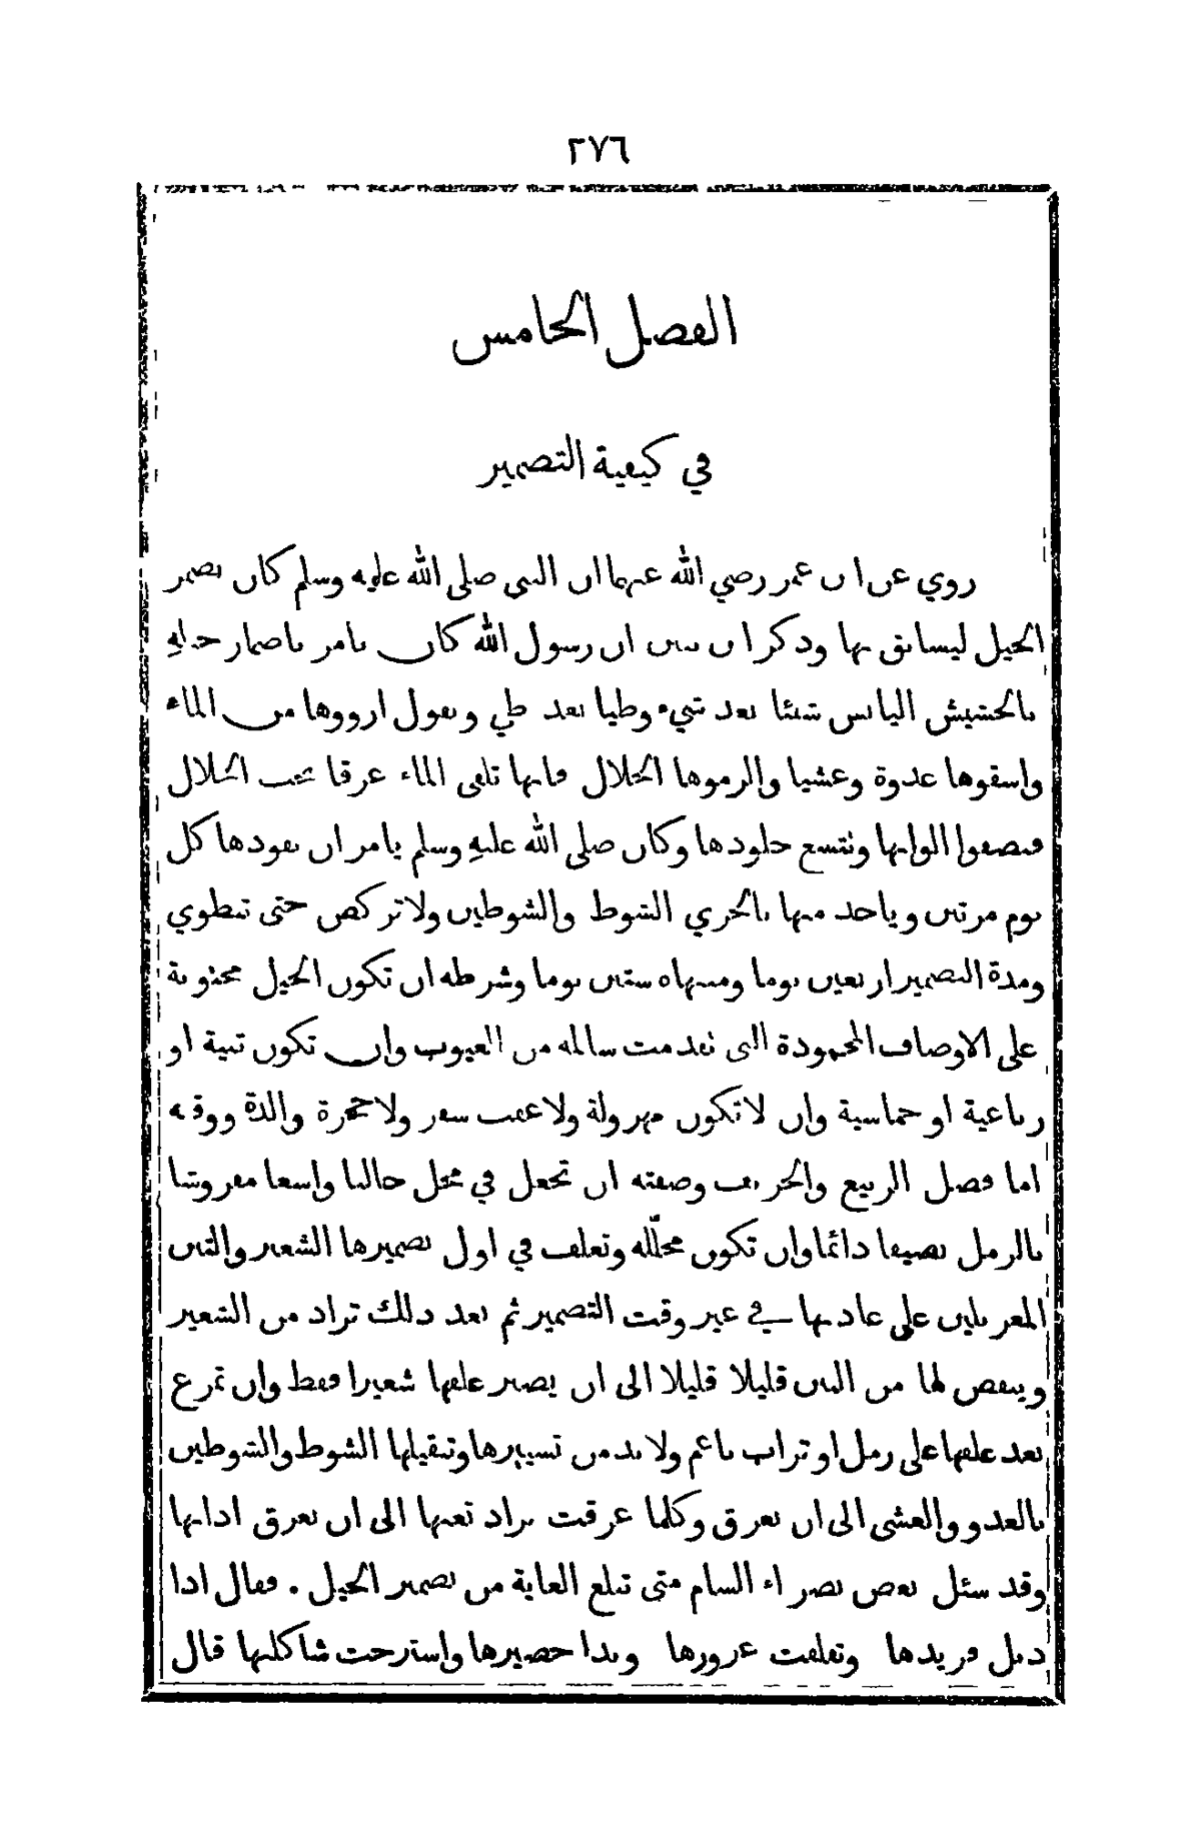 ٢٧٦
الفصل الخامس
في كيفية التضمير
روي عن ابن عمر رضي الله عنهما ان النبي صلى الله عليه وسلم كان يضمر
الخيل ليسابق بها وذكر ابن بنين ان رسول الله كان يامر باضمار خيلهِ
بالحشيش اليابس شيئا بعد شيء وطيا بعد طي ويقول ارووها من الماء
واسقوها غدوة وعشيا والزموها الجلال فانها تلقى الماء عرقا تحت الجلال
فتصفوا الوانها وتتسع جلودها وكان صلى الله عليهِ وسلم يامر ان يقودها كل
يوم مرتين وياخذ منها بالجري الشوط والشوطين ولا تركض حتى تنطوي
ومدة التضمير اربعين يوما ومنتهاه ستين يوما وشرطه ان تكون الخيل محتوية
على الاوصاف المحمودة التي تقدمت سالمه من العيوب وان تكون ثنية او
رباعية او خماسية وان لا تكون مهزولة ولا عقب سفر ولا حجرة والدة ووقته
اما فصل الربيع والخريف وصفته ان تجعل في محل خاليا واسعا مفروشا
بالرمل نصيفا دائما وان تكون مجلّله وتعلف في اول تضميرها الشعير والتبن
المغربلين على عادتها في غير وقت التضمير ثم بعد ذلك تزاد من الشعير
وينقص لها من التبن قليلا قليلا الى ان يصير علفها شعيرا فقط وان تمرغ
بعد علفها على رمل او تراب ناعم ولا بد من تسييرها وتنقيلها الشوط والشوطين
بالغدو والعشى الى ان تعرق وكلما عرقت يزاد تعبها الى ان تعرق اذانها
وقد سئل بعض بصراء الشام متى تبلغ الغاية من تضمير الخيل . فقال اذا
ذبل فريدها وتفلقت غرورها وبدا حصيرها واسترخت شاكلتها قال